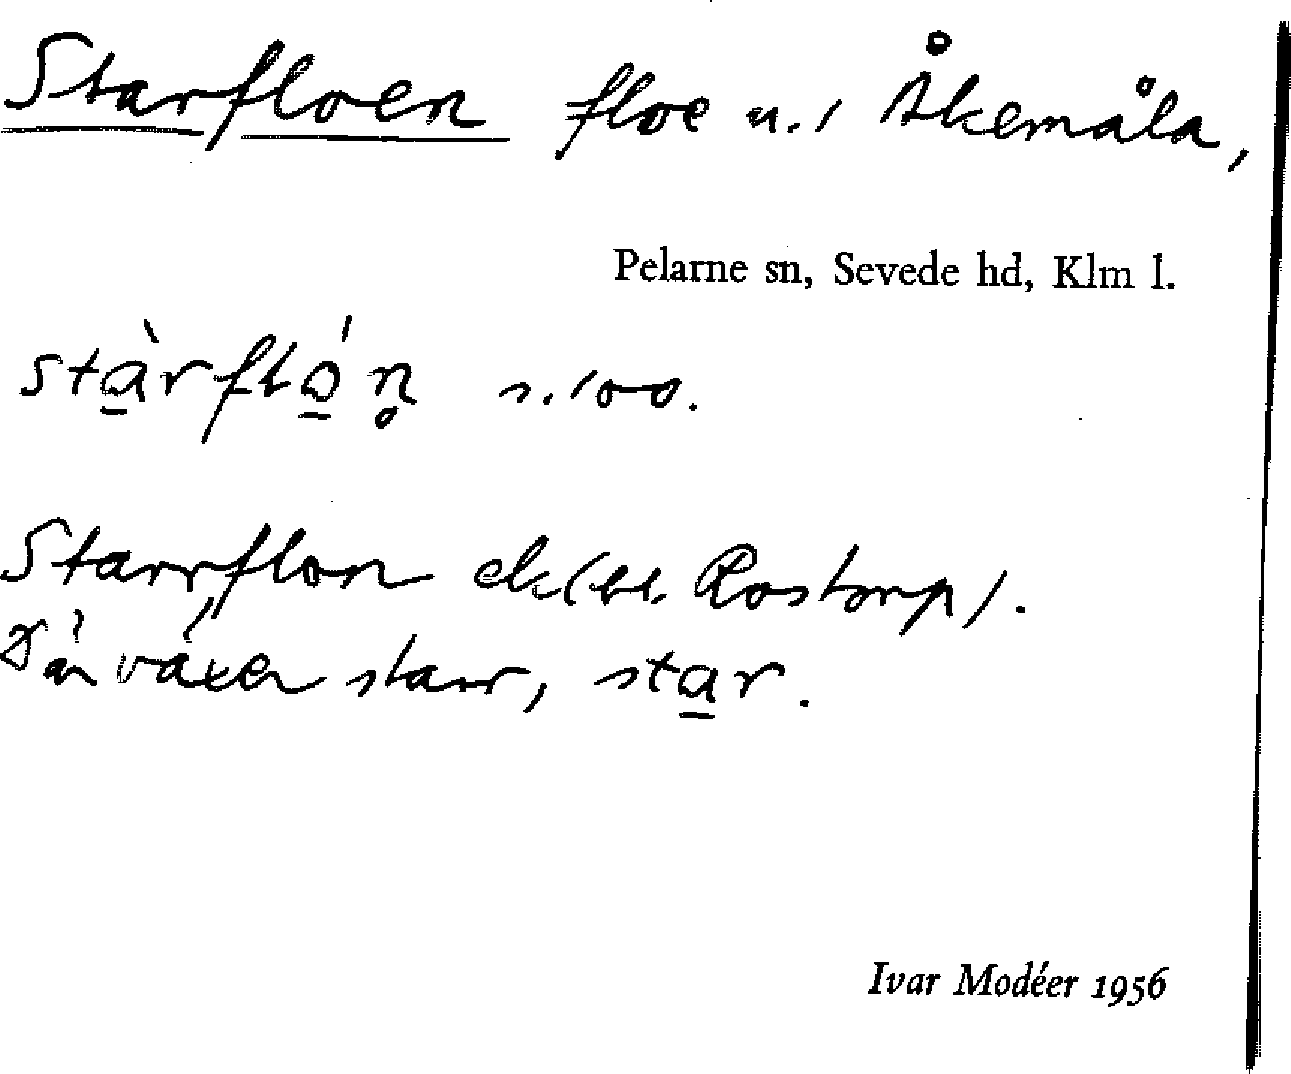 Starfloen floe n. / Åkemåla,
Pelarne sn, Sevede hd, Klm l.
stà̱rfló̱n̥ s. 100.
Starrflon ek (bl. Rostorp).
Där växer starr, sta̱r.
Ivar Modéer 1956